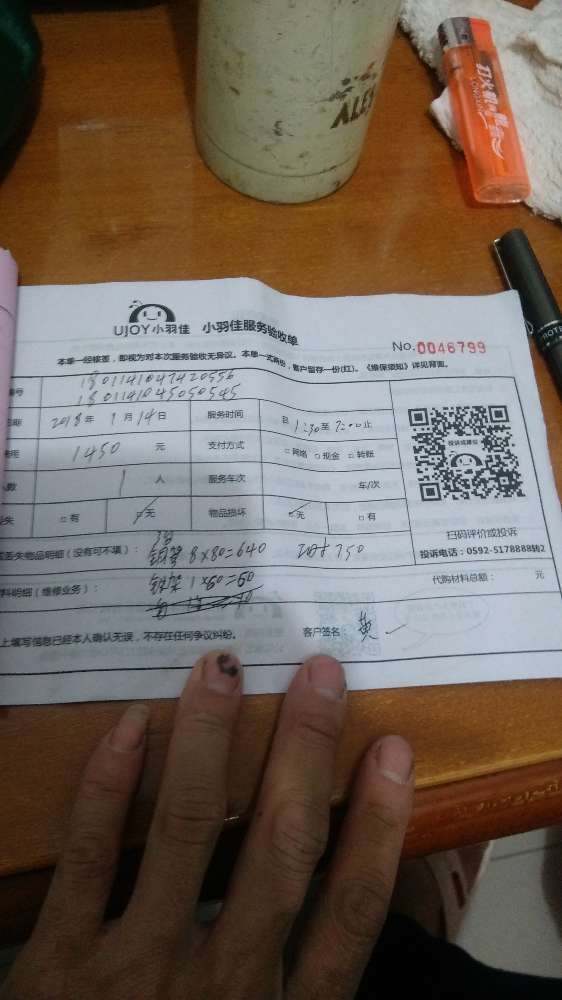 打火機
UJOY小羽佳 小羽佳服务验收单
No.0046799
本单一经核签，即视为对本次服务验收无异议。本单一式两份，客户留存一份(红)。《维保须知》详见背面。
号 1801141047420556
1801141045050545
2018年 1月14日 服务时间 自1:30至7:00止
1450 元 支付方式 □网络 ○现金 □转账
人数 1 人 服务车次 车/次
□有 □无 物品损坏 □无 □有
投诉或建议
扫码评价或投诉
投诉电话：0592-5178888转2
丢失物品明细（没有可不填）： 8×80=640 750
料明细（维修业务）： 1×50=50 代购材料总额： 元
上填写信息已经本人确认无误，不存在任何争议纠纷。 客户签名 黄